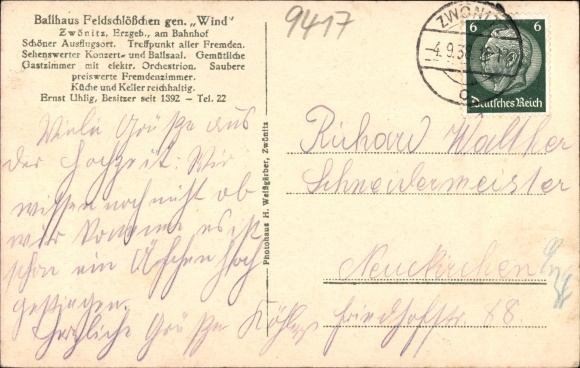 Ballhaus Feldschlößchen gen. „Wind"
Zwönitz, Erzgeb., am Bahnhof
Schöner Ausflugsort. Treffpunkt aller Fremden.
Sehenswerter Konzert- und Ballsaal. Gemütliche
Gastzimmer mit elektr. Orchestrion. Saubere
preiswerte Fremdenzimmer.
Küche und Keller reichhaltig.
Ernst Uhlig, Besitzer seit 1892 — Tel. 22
9417
ZWÖNITZ
4.9.3
6 6
Deutsches Reich
Viele Grüße aus
der Hochzeit. Wir
wissen noch nicht ob
wir kommen es ist
schon ein Äffchen hoch
gestiegen.
Herzliche Grüße Köhler
Photohaus H. Weißgärber, Zwönitz
Richard Walther
Schneidermeister
Neukirchen
Friedhofstr. 88.